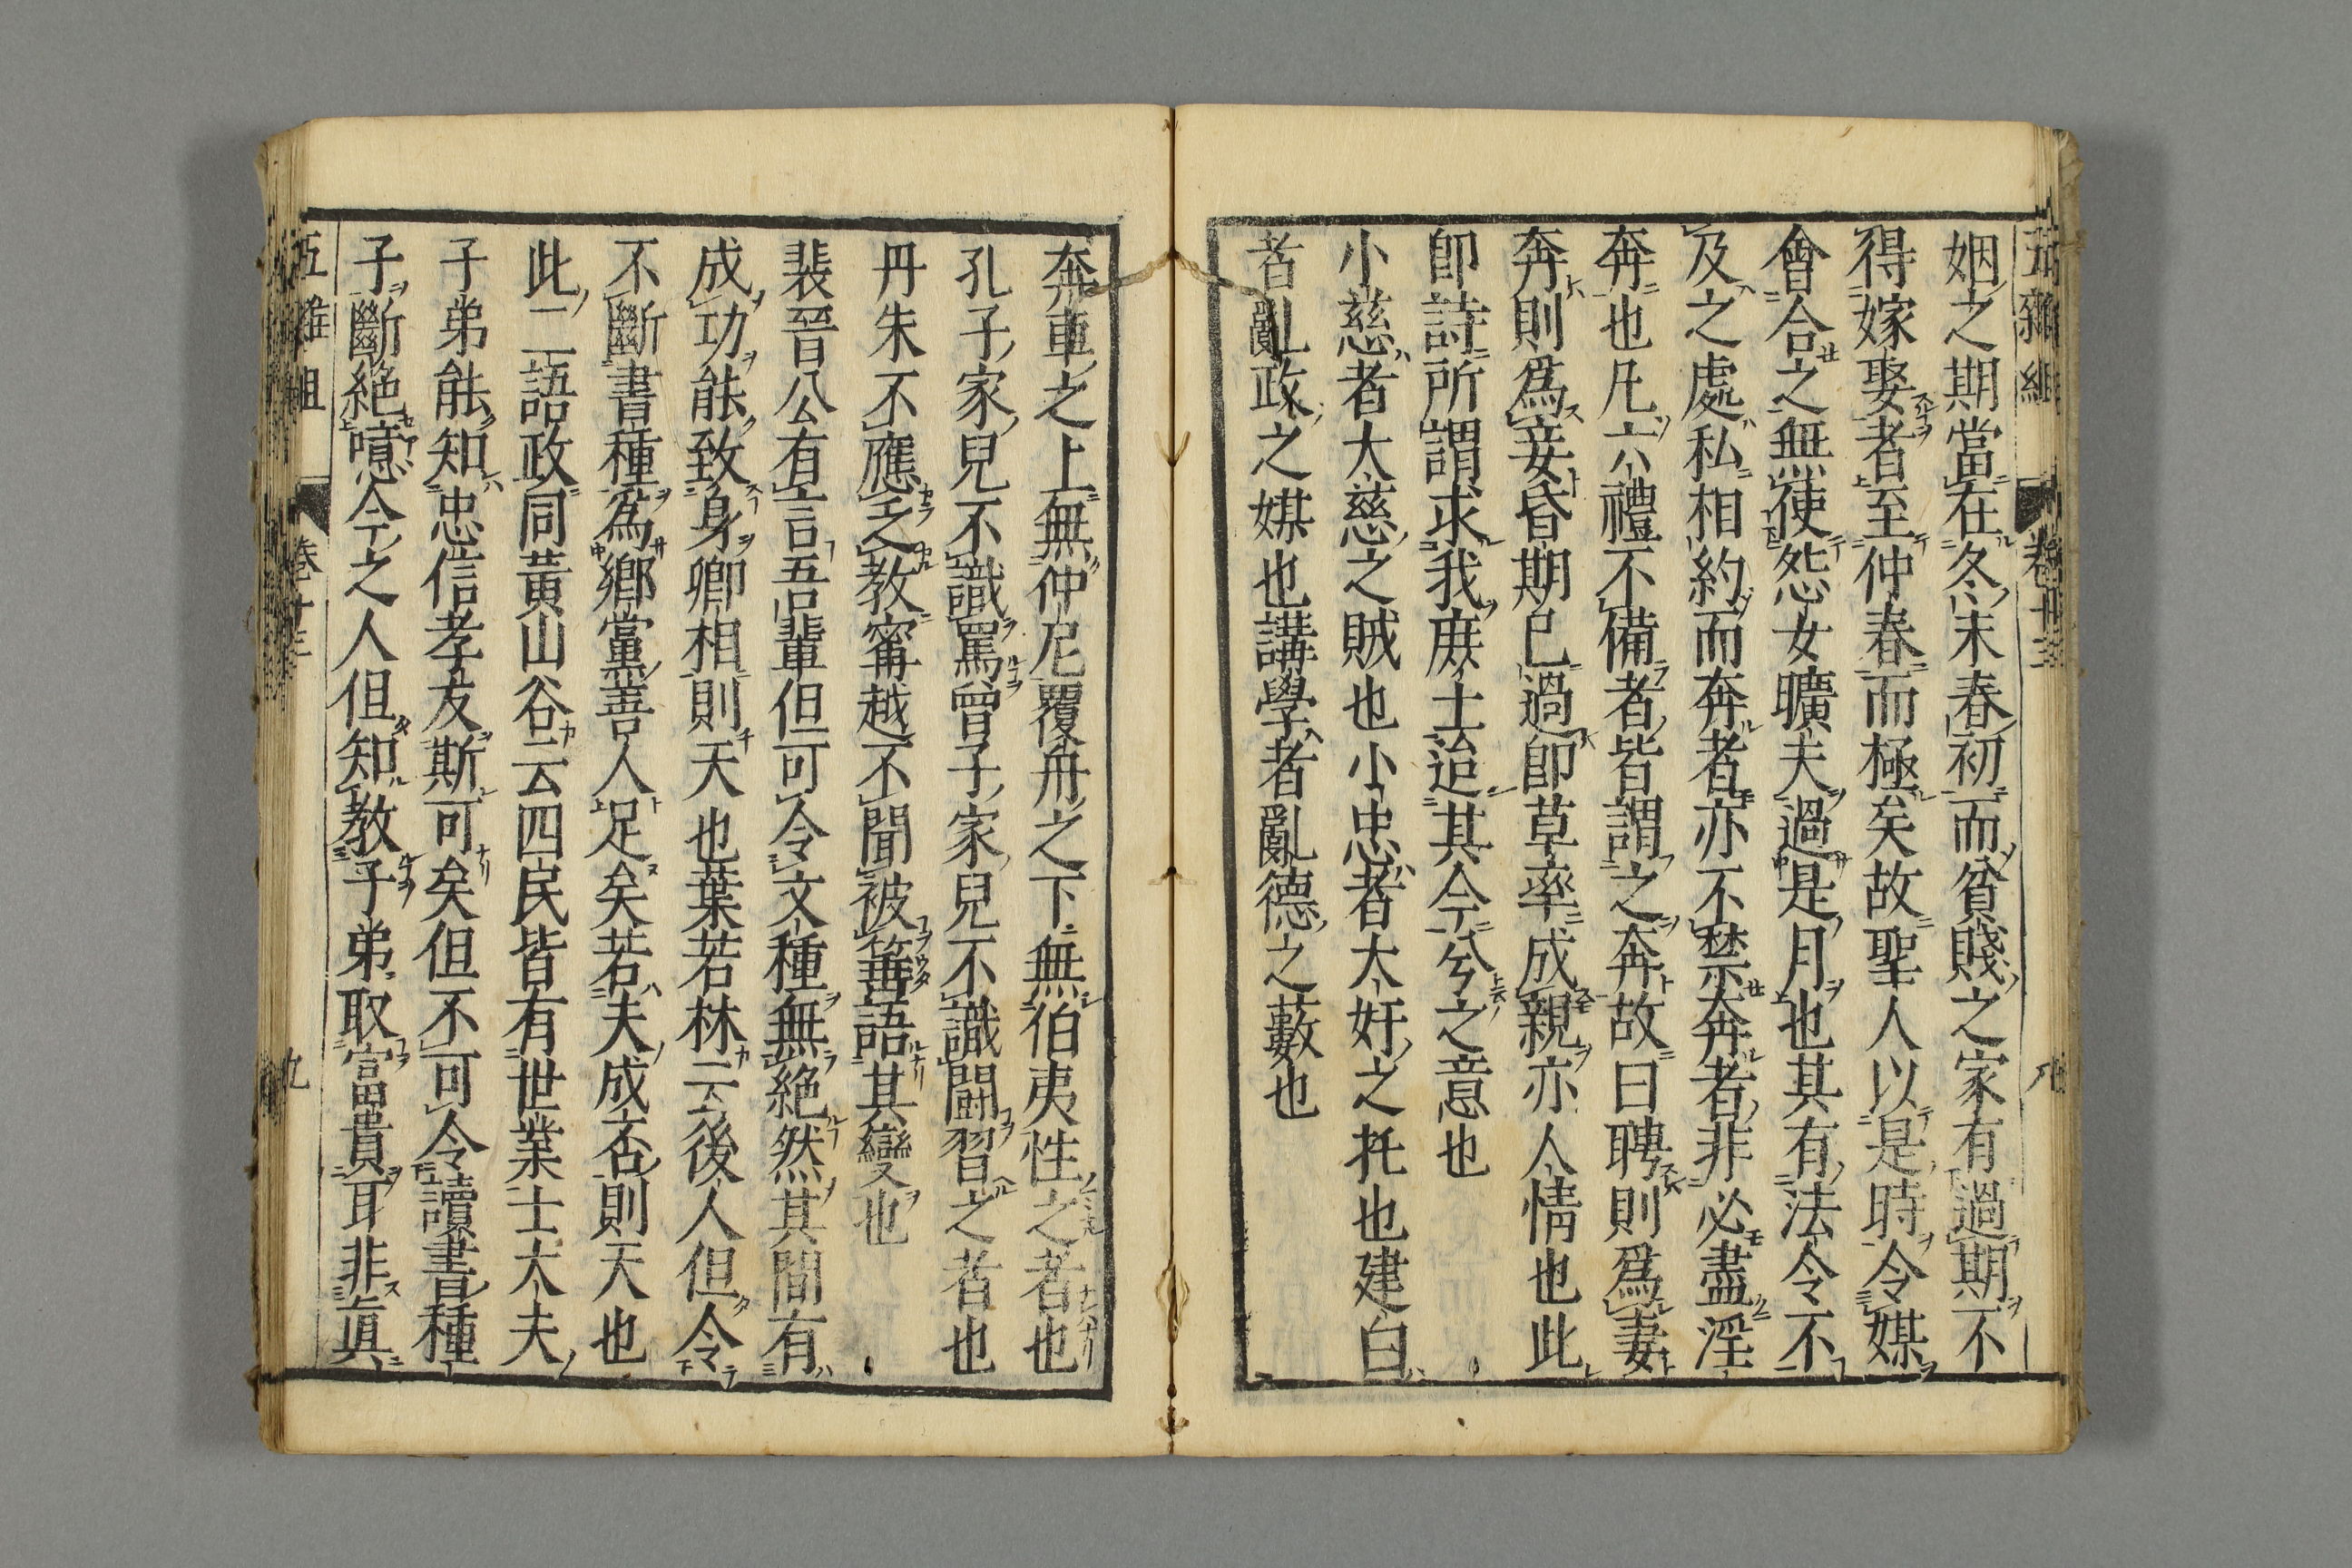 五雜組 卷十三 八
姻之期當在冬末春初而貧賤之家有過期不
得嫁娶者至仲春而極矣故聖人以是時令媒
會合之無使怨女曠夫過是月也其有法令不
及之處私相約而奔者亦不禁奔者非必盡淫
奔也凡六禮不備者皆謂之奔故曰聘則爲妻
奔則爲妾昏期已過卽草率成親亦人情也此
卽詩所謂求我庶士迨其今兮之意也
小慈者大慈之賊也小忠者大奸之托也建白
者亂政之媒也講學者亂德之藪也
奔車之上無仲尼覆舟之下無伯夷性之者也
孔子家兒不識罵曾子家兒不識鬪習之者也
丹朱不應乏教寗越不聞被箠語其變也
裴晉公有言吾輩但可令文種無絶然其間有
成功能致身卿相則天也葉若林云後人但令
不斷書種爲鄉黨善人足矣若夫成否則天也
此二語政同黃山谷云四民皆有世業士大夫
子弟能知忠信孝友斯可矣但不可令讀書種
子斷絶噫今之人但知教子弟取富貴耳非眞
五雜組 卷十三 九